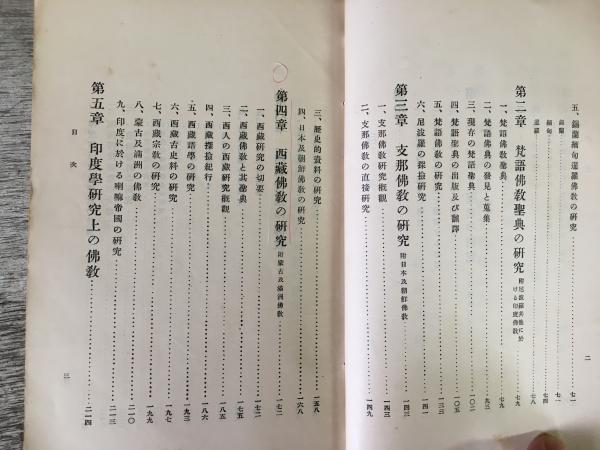 五、錫蘭緬甸暹羅佛敎の硏究……七一
錫蘭……七一
緬甸……七四
暹羅……七八
第二章 梵語佛敎聖典の硏究 附尼波羅其他に於ける印度佛敎……七九
一、梵語佛敎聖典……七九
二、梵語佛典の發見と蒐集……九三
三、現存の梵語聖典……一〇二
四、梵語聖典の出版及び翻譯……一〇五
五、梵語佛敎の硏究……一二二
六、尼波羅の探檢硏究……一四一
第三章 支那佛敎の硏究 附日本及朝鮮佛敎……一四三
一、支那佛敎硏究槪觀……一四三
二、支那佛敎の直接硏究……一四九
二
三、歷史的資料の硏究……一五八
四、日本及朝鮮佛敎の硏究……一六八
第四章 西藏佛敎の硏究 附蒙古及滿洲佛敎……一七二
一、西藏硏究の切要……一七二
二、西藏佛敎と其聖典……一七五
三、西人の西藏硏究槪觀……一八五
四、西藏探檢紀行……一八六
五、西藏語學の硏究……一九三
六、西藏古史料の硏究……一九七
七、西藏宗敎の硏究……一九九
八、蒙古及滿洲の佛敎……二一〇
九、印度に於ける喇嘛帝國の硏究……二一三
第五章 印度學硏究上の佛敎……二一四
目次
三